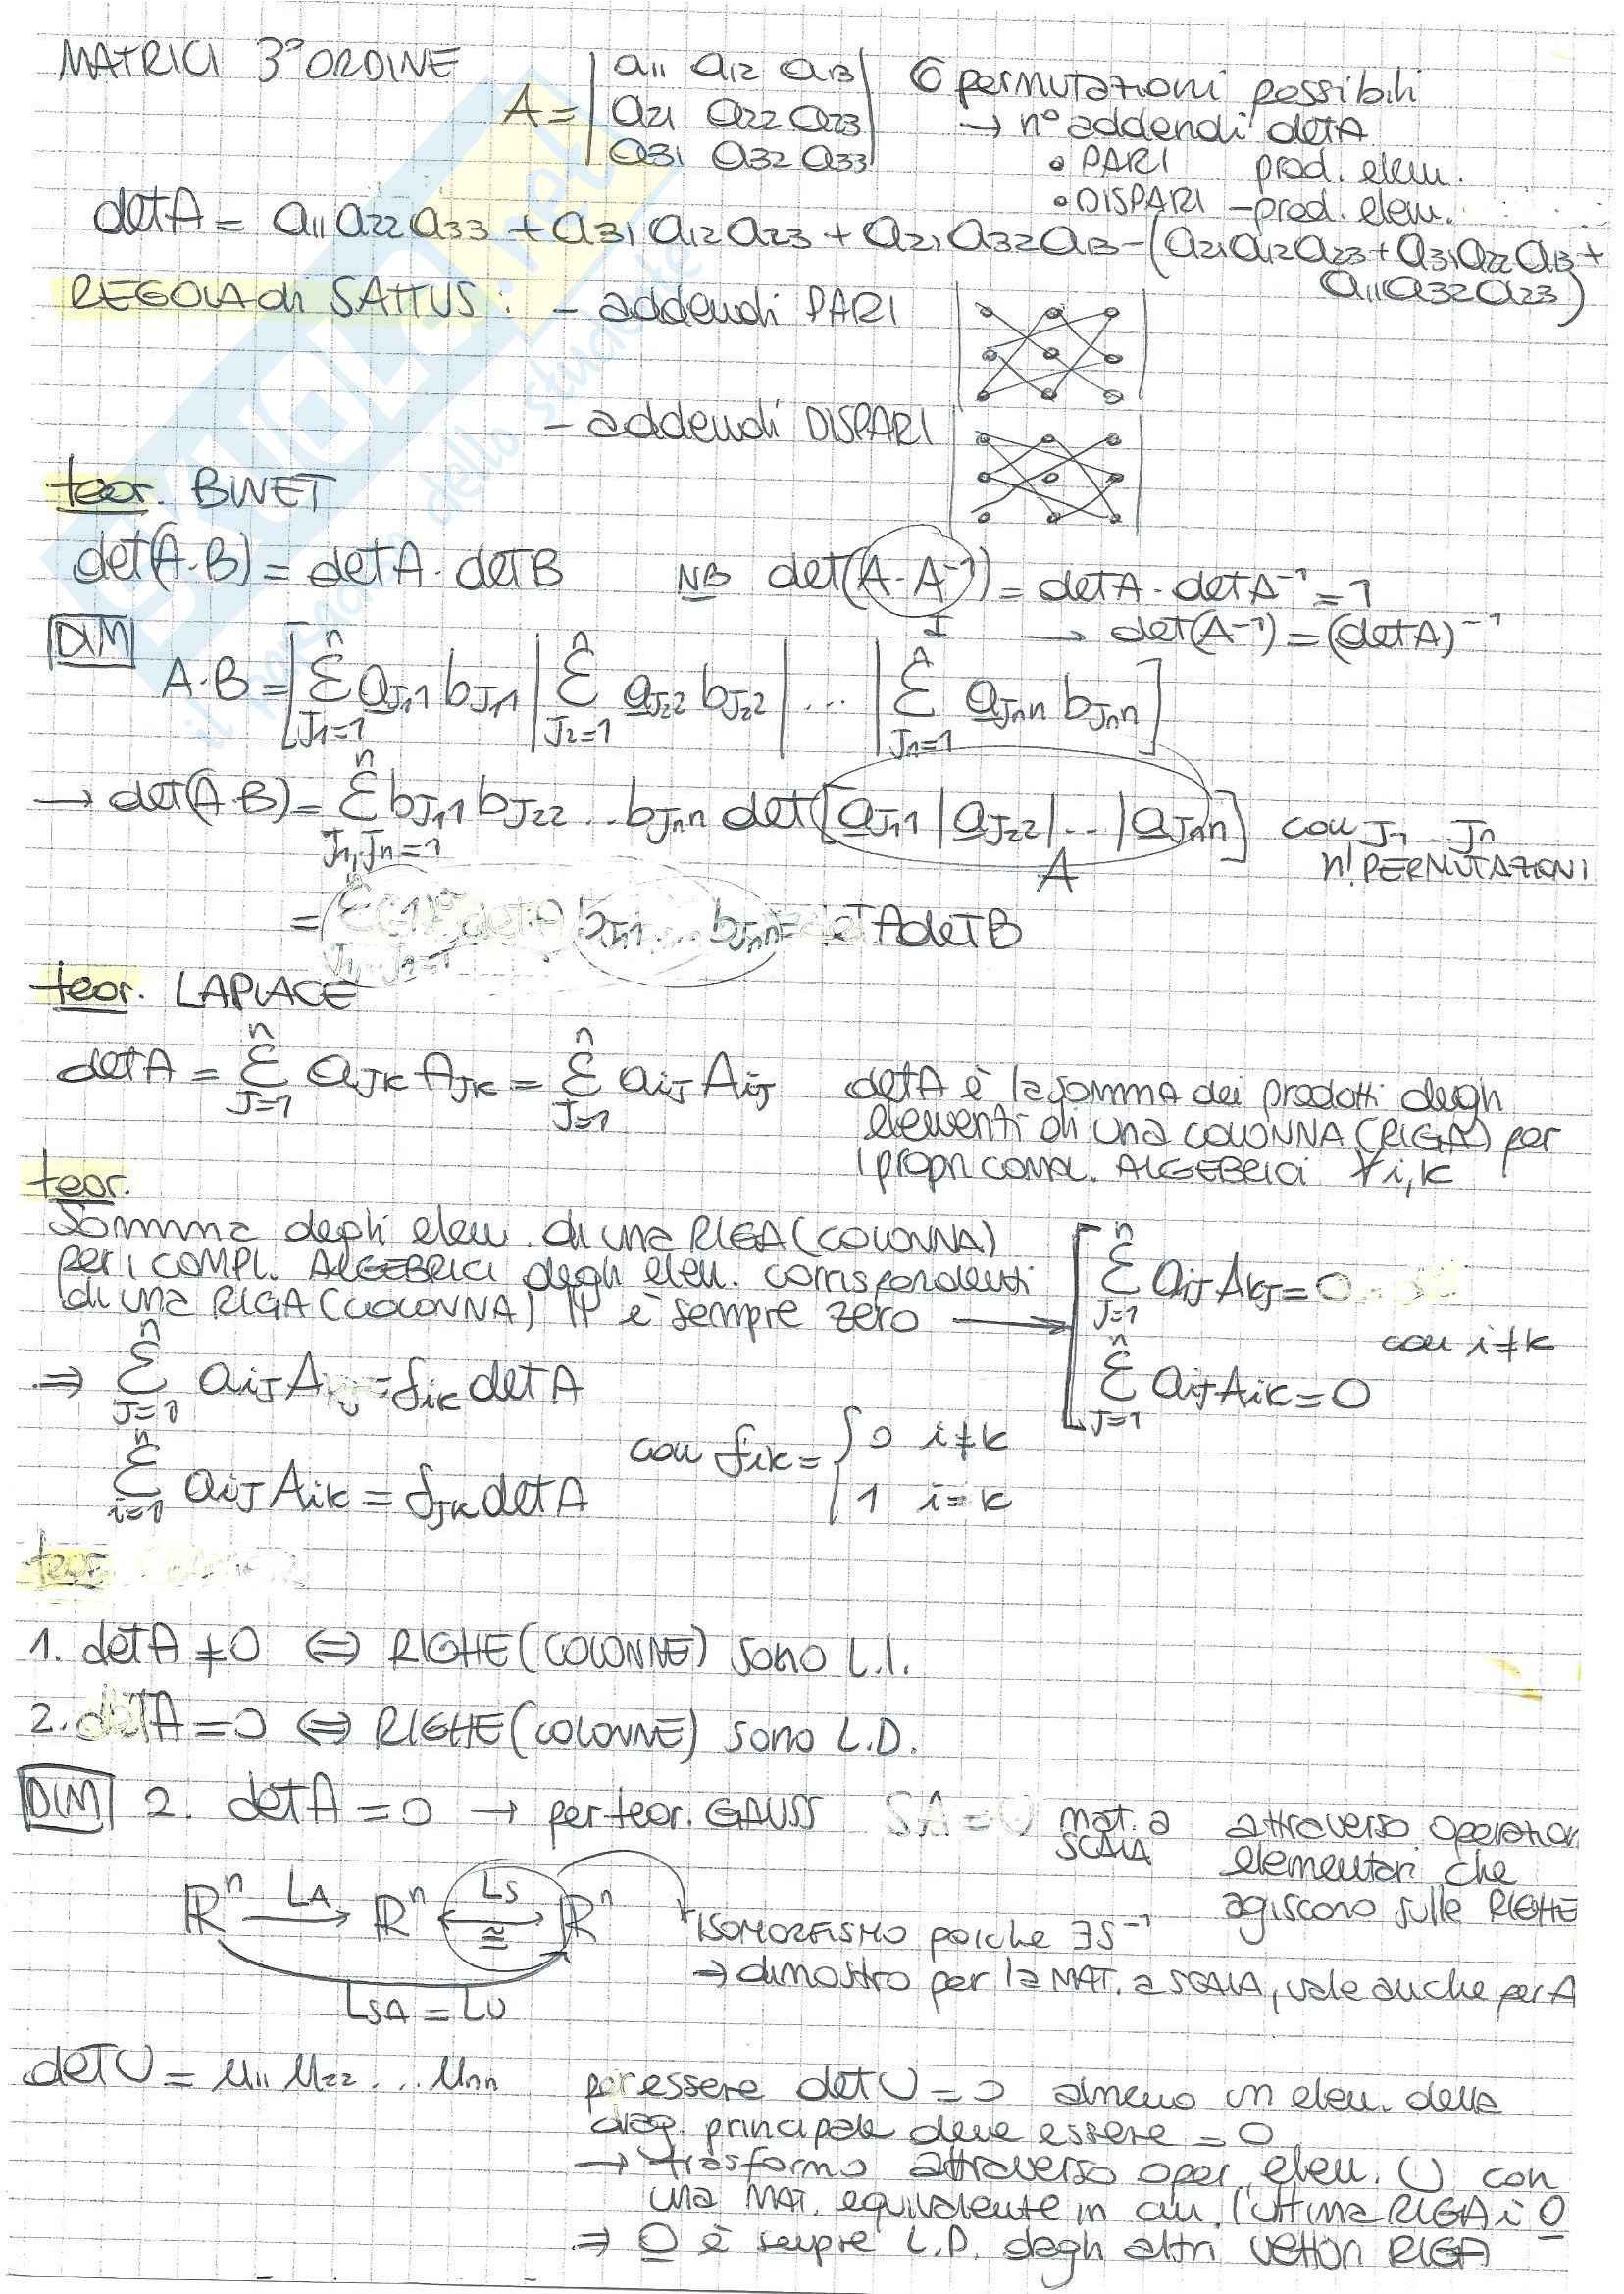 MATRICI 3° ORDINE
A = | a11 a12 a13 |
| a21 a22 a23 |
| a31 a32 a33 |
6 permutazioni possibili
→ n° addendi detA
• PARI prod. elem.
• DISPARI -prod. elem.
detA = a11 a22 a33 + a31 a12 a23 + a21 a32 a13 - (a21 a12 a23 + a31 a22 a13 +
a11 a32 a23)
REGOLA di SATTUS : - addendi PARI
- addendi DISPARI
teor. BINET
det(A·B) = detA · detB NB det(A·A⁻¹) = detA · detA⁻¹ = 1
I → det(A⁻¹) = (detA)⁻¹
DIM
A·B = [ Σ^n_{J1=1} a_{J1 1} b_{J1 1} | Σ^n_{J2=1} a_{J2 2} b_{J2 2} | ... | Σ^n_{Jn=1} a_{Jn n} b_{Jn n} ]
→ det(A·B) = Σ^n_{J1,Jn=1} b_{J1 1} b_{J2 2} .. b_{Jn n} det[ a_{J1 1} | a_{J2 2} | .. | a_{Jn n} ] con J1 .. Jn
A n! PERMUTAZIONI
= b_{J1 1} ... b_{Jn n} = detA detB
teor. LAPLACE
detA = Σ^n_{J=1} a_{JK} A_{JK} = Σ^n_{J=1} a_{iJ} A_{iJ}
detA è la somma dei prodotti degli
elementi di una COLONNA (RIGA) per
i propri compl. ALGEBRICI ∀ i,k
teor.
Somma degli elem. di una RIGA (COLONNA)
per i COMPL. ALGEBRICI degli elem. corrispondenti
di una RIGA (COLONNA) // è sempre zero →
Σ^n_{J=1} a_{iJ} A_{kJ} = 0
con i≠k
Σ^n_{J=1} a_{iJ} A_{ik} = 0
⇒ Σ^n_{J=1} a_{iJ} A = δ_{ik} detA
con δ_{ik} = { 0 i≠k
1 i=k
Σ^n_{i=1} a_{iJ} A_{ik} = δ_{Jk} detA
teor.
1. detA ≠ 0 ⇔ RIGHE (COLONNE) sono L.I.
2. detA = 0 ⇔ RIGHE (COLONNE) sono L.D.
DIM 2. detA = 0 → per teor. GAUSS SA = U mat. a
SCALA
attraverso operazion
elementari che
agiscono sulle RIGHE
R^n —L_A→ R^n ←L_S→ R^n
≅
ISOMORFISMO poiche ∃S⁻¹
→ dimostro per la MAT. a SCALA, vale anche per A
L_SA = L_U
detU = u11 u22 ... unn
per essere detU = 0 almeno un elem. della
diag. principale deve essere = 0
→ trasformo attraverso oper. elem. U con
una MAT. equivalente in cui l'ultima RIGA è 0
⇒ 0 è sempre L.D. dagli altri vettori RIGA